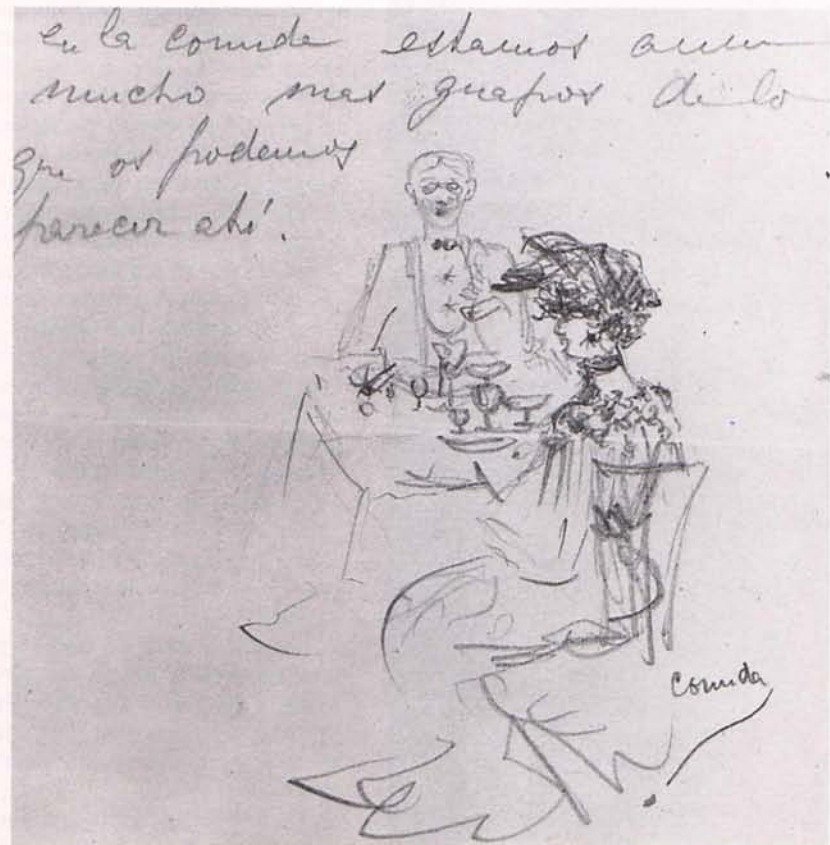 en la comida estamos aun
mucho mas guapos de lo
que os podemos
parecer ahí.
comida